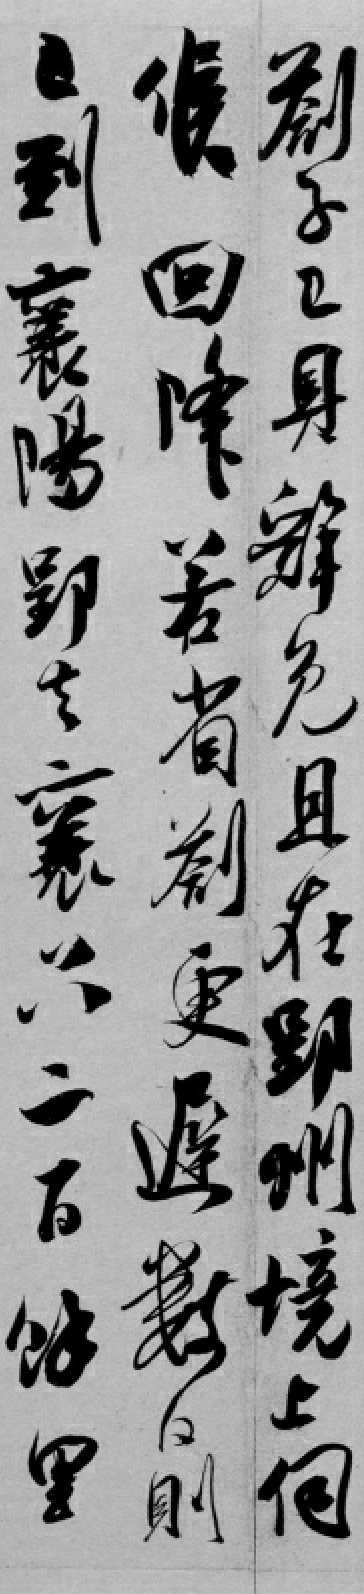 劄子上具辭免且在郢州境上伺
候回降若省劄更遲數日則
已到襄陽郢去襄只二百餘里